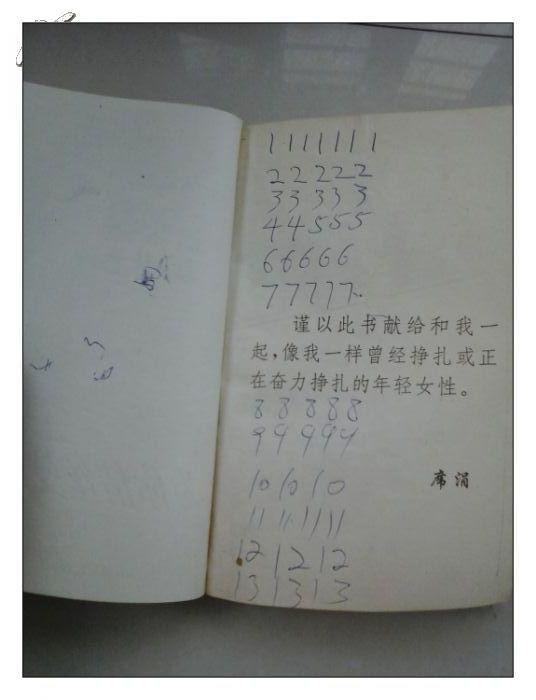 1 1 1 1 1 1 1
2 2 2 2 2
3 3 3 3 3
4 4 5 5 5
6 6 6 6 6
7 7 7 7 7
谨以此书献给和我一
起,像我一样曾经挣扎或正
在奋力挣扎的年轻女性。
8 8 8 8 8
9 9 9 9 9
10 10 10
席涓
11 11 11 11
12 12 12
13 13 13